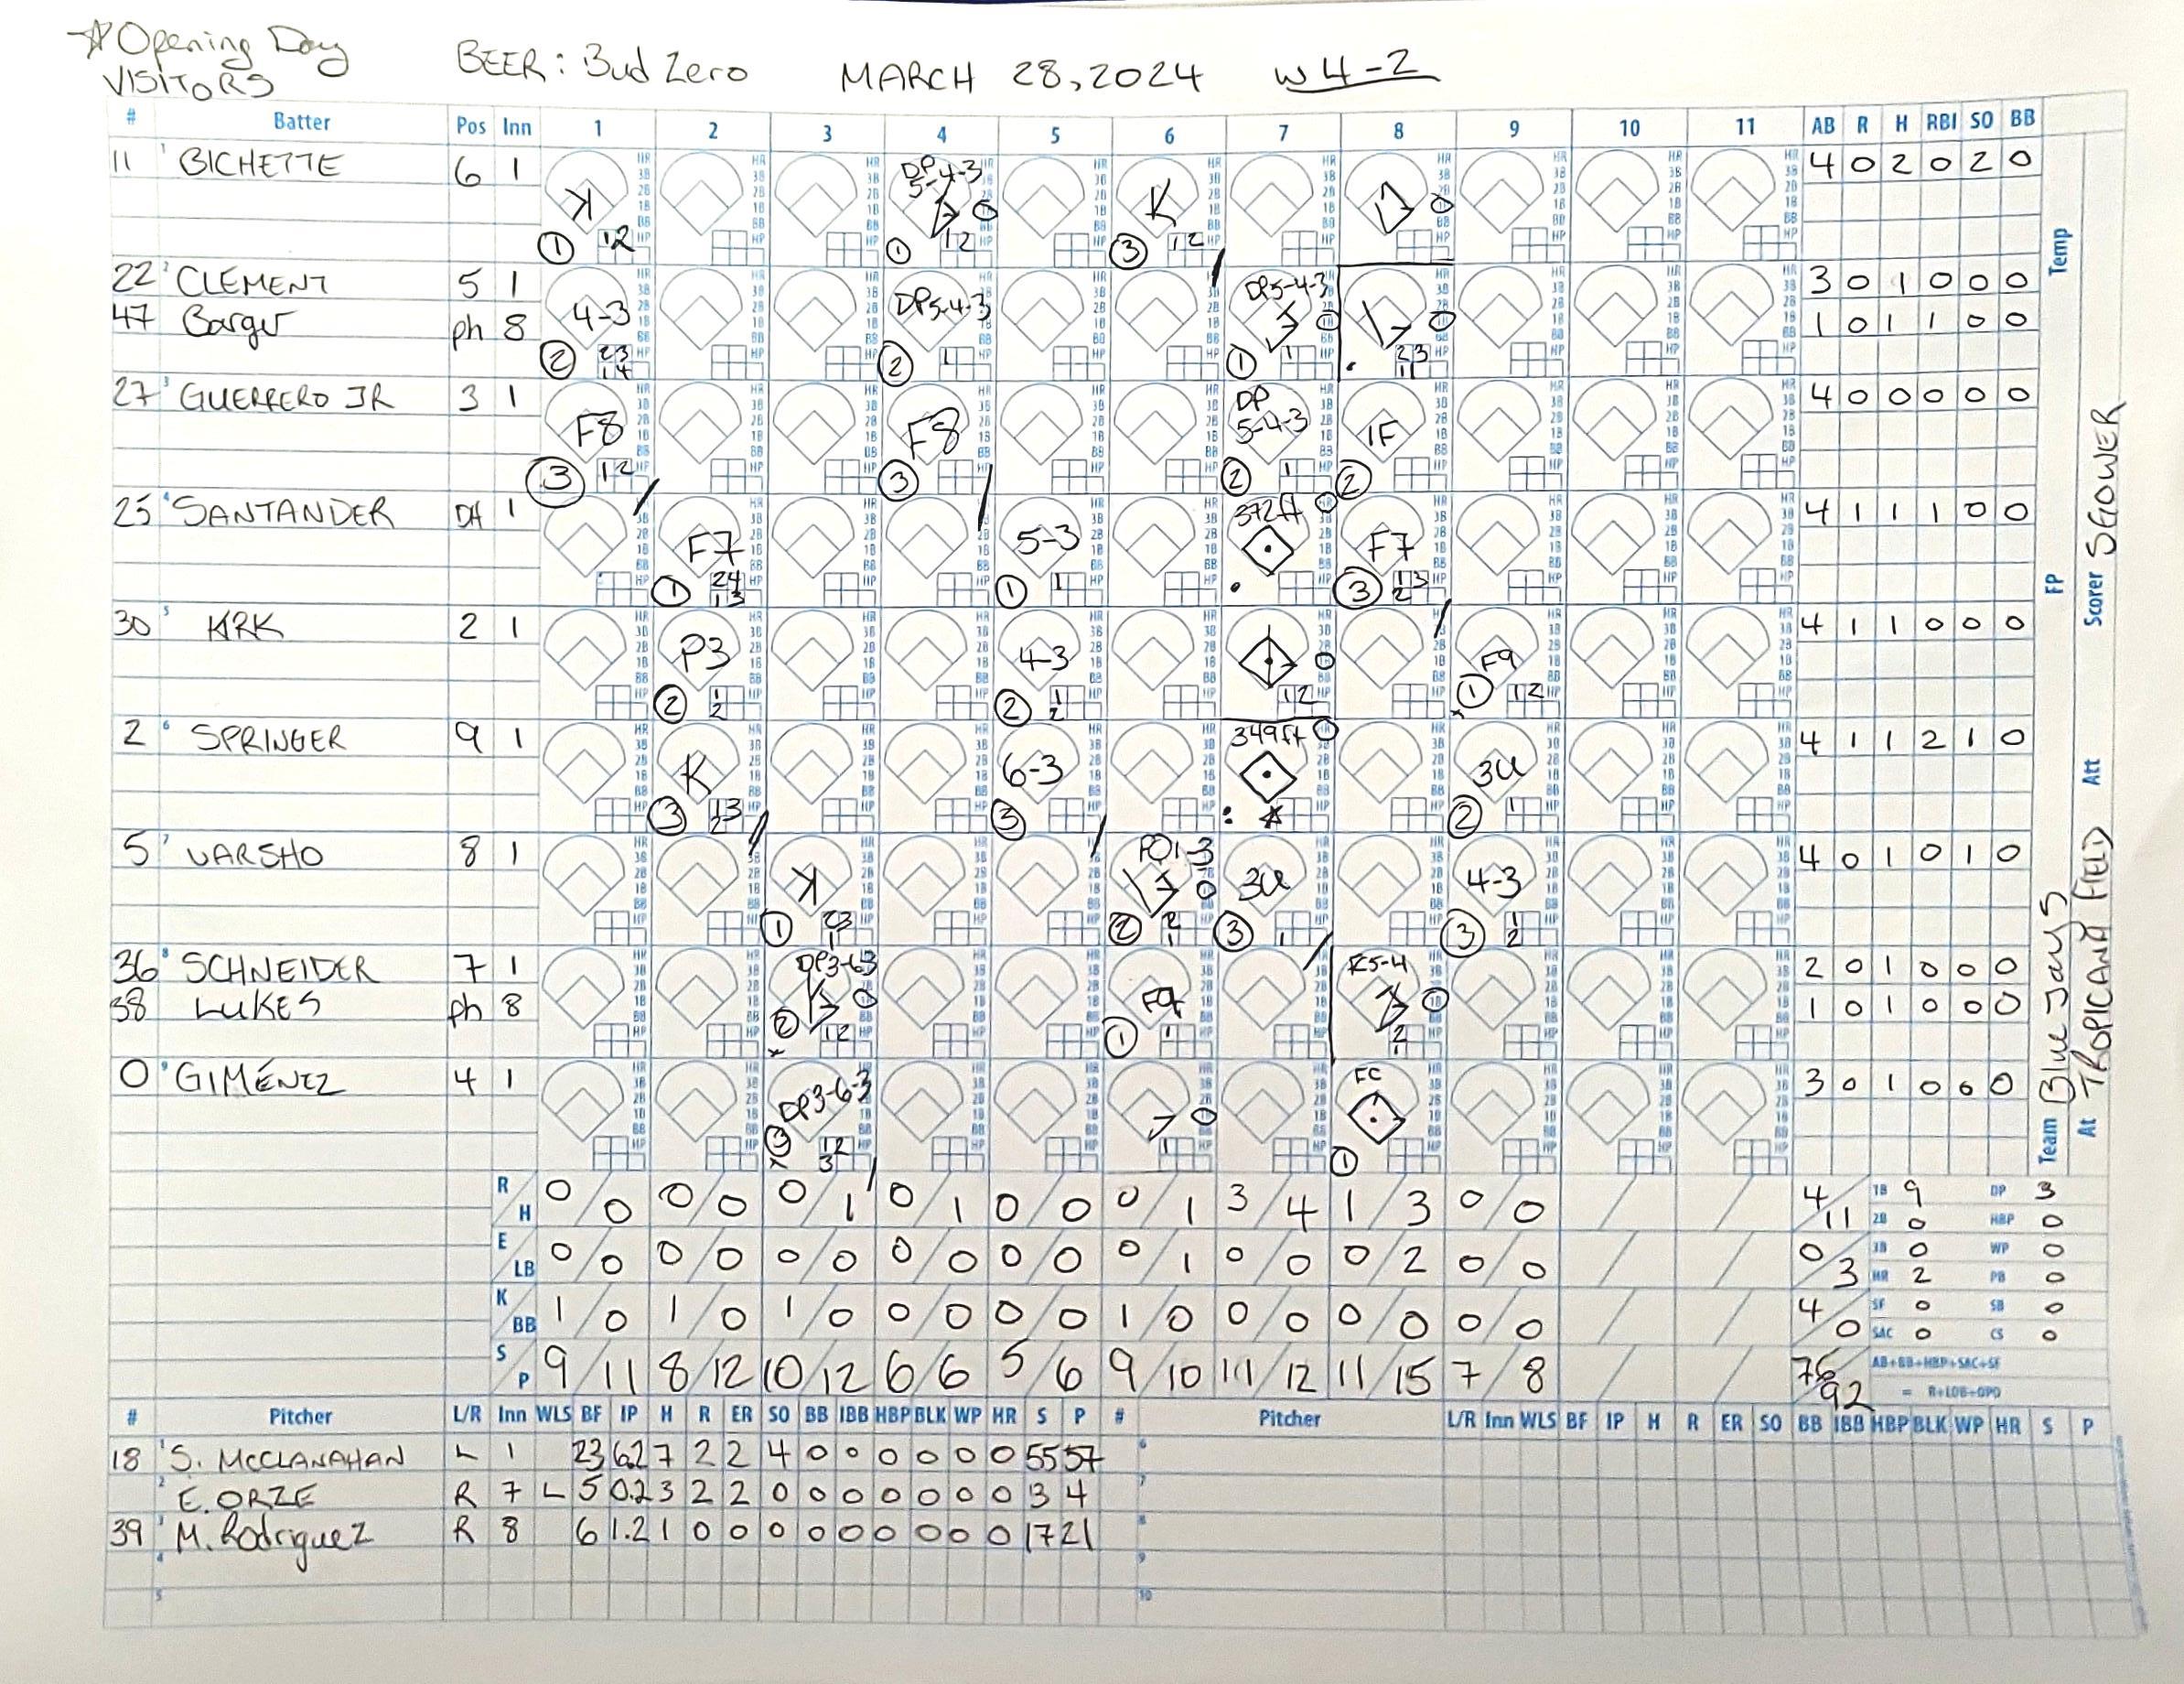 ☆Opening Day
VISITORS
BEER: Bud Zero MARCH 28,2024 W 4-2
# Batter Pos Inn 1 2 3 4 5 6 7 8 9 10 11 AB R H RBI SO BB
11 BICHETTE 6 1 K DP 5-4-3 K 4 0 2 0 2 0
22 CLEMENT 5 1 4-3 DP5-4-3 DP5-4-3 3 0 1 0 0 0
47 Barger ph 8 1 0 1 1 0 0
27 GUERRERO JR 3 1 F8 F8 DP 5-4-3 1F 4 0 0 0 0 0
25 SANTANDER DH 1 F7 5-3 372ft F7 4 1 1 1 0 0
30 KIRK 2 1 P3 4-3 F9 4 1 1 0 0 0
2 SPRINGER 9 1 K 6-3 349ft 3U 4 1 1 2 1 0
5 VARSHO 8 1 K PO1-3 3U 4-3 4 0 1 0 1 0
36 SCHNEIDER 7 1 DP3-6-3 F9 2 0 1 0 0 0
38 LUKES ph 8 1 0 1 0 0 0
0 GIMÉNEZ 4 1 DP3-6-3 FC 3 0 1 0 0 0
R/H 0/0 0/0 0/1 0/1 0/0 0/1 3/4 1/3 0/0 4/11
1B 9 DP 3
2B 0 HBP 0
E/LB 0/0 0/0 0/0 0/0 0/0 0/1 0/0 0/2 0/0 0/3
3B 0 WP 0
HR 2 PB 0
K/BB 1/0 1/0 1/0 0/0 0/0 1/0 0/0 0/0 0/0 4/0
SF 0 SB 0
SAC 0 CS 0
S/P 9/11 8/12 10/12 6/6 5/6 9/10 11/12 11/15 7/8 76/92
AB+BB+HBP+SAC+SF
= R+LOB+OPO
# Pitcher L/R Inn WLS BF IP H R ER SO BB IBB HBP BLK WP HR S P # Pitcher L/R Inn WLS BF IP H R ER SO BB IBB HBP BLK WP HR S P
18 S. McCLANAHAN L 1 23 6.2 7 2 2 4 0 0 0 0 0 0 55 57
E. ORZE R 7 L 5 0.2 3 2 2 0 0 0 0 0 0 0 3 4
39 M. Rodriguez R 8 6 1.2 1 0 0 0 0 0 0 0 0 0 17 21
Team Blue Jays FP Temp
At TROPICANA FIELD Att Scorer SEGOWER